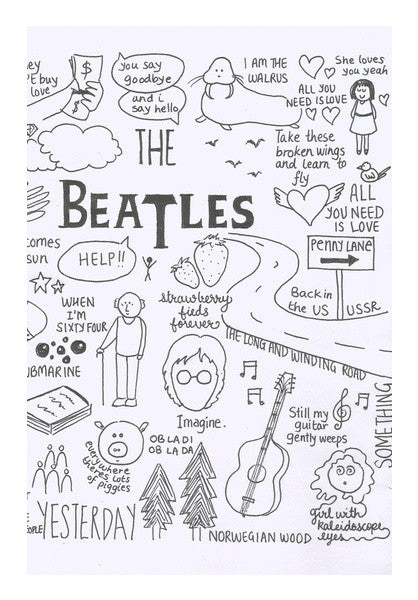 ey
PE buy
love
$
$
you say
goodbye
and i
say hello
I AM THE
WALRUS
She loves
you yeah
ALL YOU
NEED IS LOVE
THE
Take these
broken wings
and learn to
fly
BEATLES
ALL
YOU NEED
IS LOVE
PENNY LANE
omes
sun
HELP!!
Back in
the US
USSR
WHEN
I'M
SIXTY FOUR
strawberry
fieds
forever
THE LONG AND WINDING ROAD
BMARINE
Imagine.
Still my
guitar
gently weeps
SOMETHING
everywhere
theres lots
of piggies
OB LA DI
OB LA DA
girl with
kaleidoscope
eyes
E
OPLE
YESTERDAY
NORWEGIAN WOOD